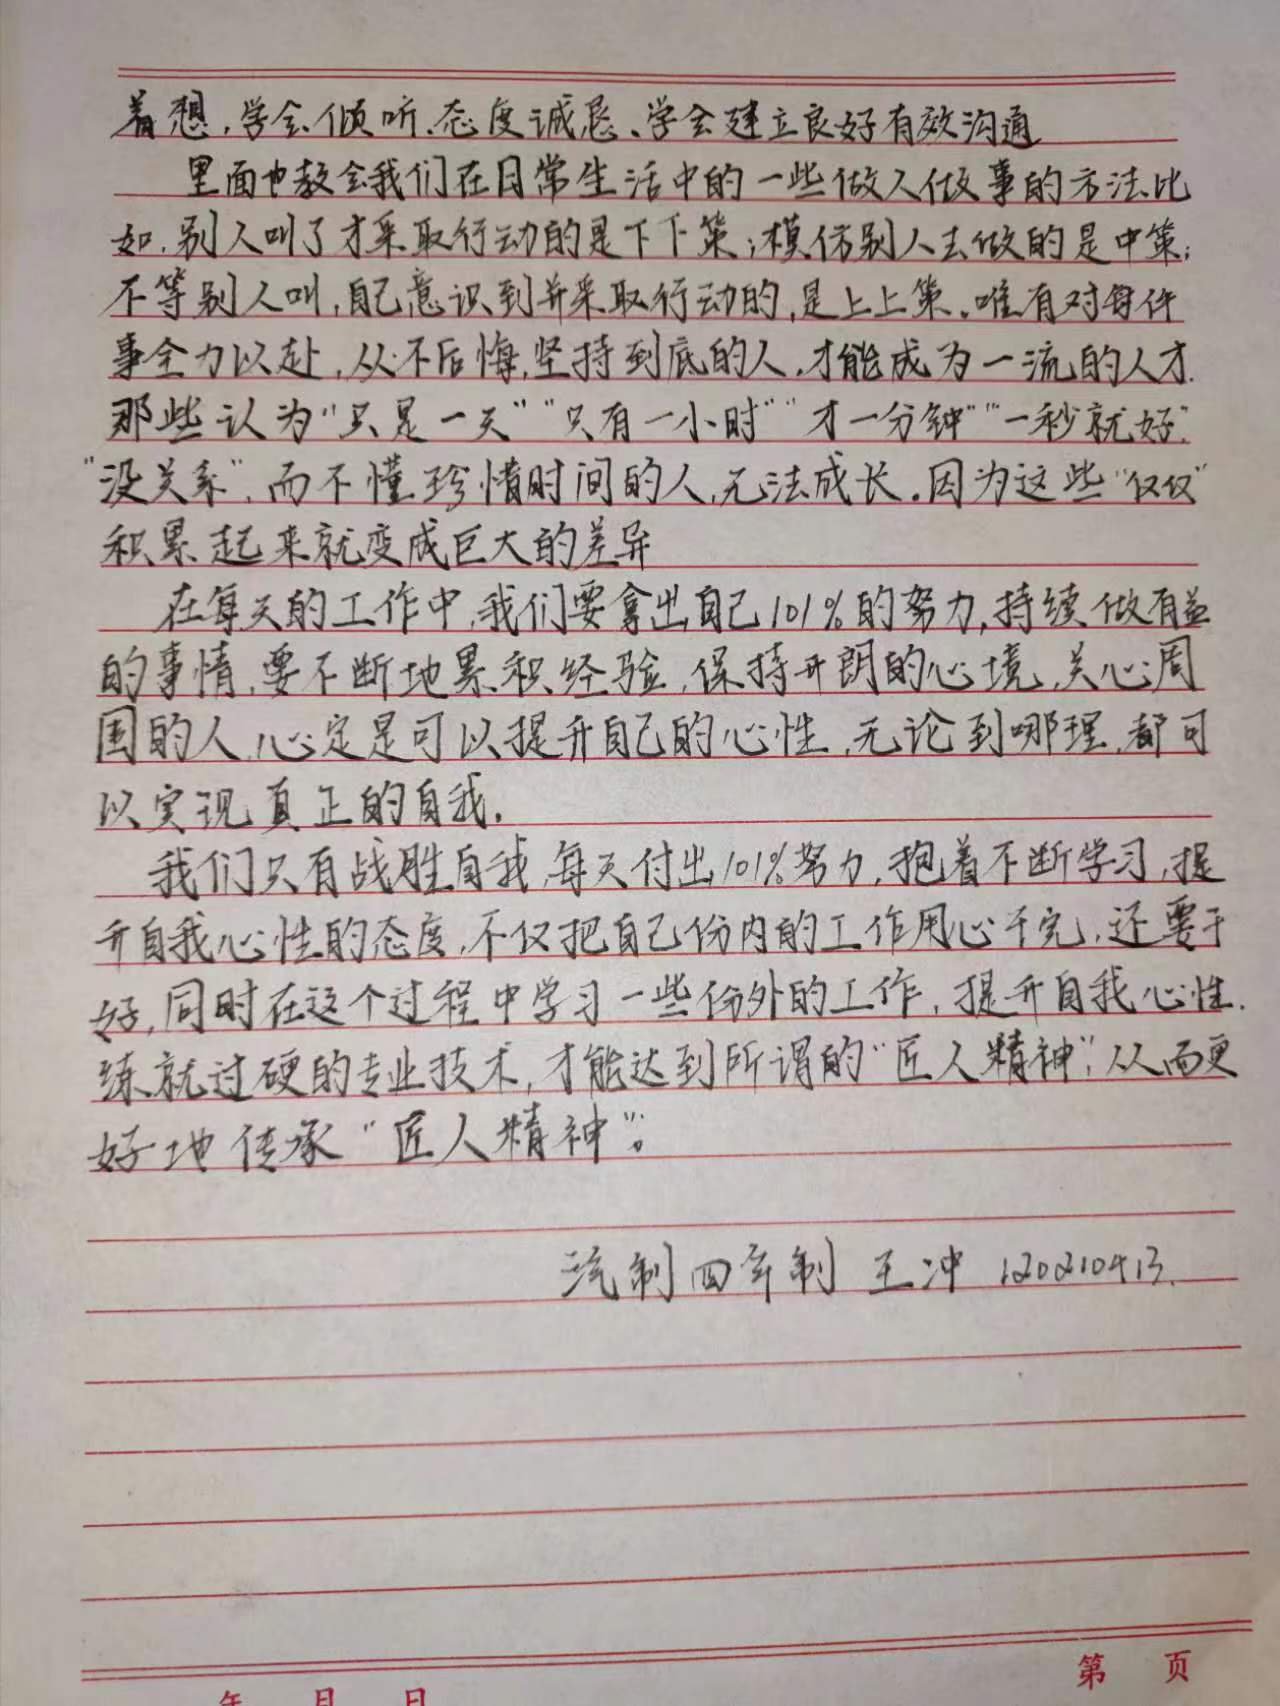 着想,学会倾听、态度诚恳、学会建立良好有效沟通
里面也教会我们在日常生活中的一些做人做事的方法、比
如,别人叫了才采取行动的是下下策;模仿别人去做的是中策;
不等别人叫,自己意识到并采取行动的,是上上策。唯有对每件
事全力以赴,从不后悔,坚持到底的人,才能成为一流的人才.
那些认为“只是一天”“只有一小时”“才一分钟”“一秒就好”
“没关系”,而不懂珍惜时间的人,无法成长。因为这些“仅仅”
积累起来就变成巨大的差异
在每天的工作中,我们要拿出自己101%的努力,持续做有益
的事情,要不断地累积经验,保持开朗的心境,关心周
围的人,心定是可以提升自己的心性,无论到哪理,都可
以实现真正的自我.
我们只有战胜自我,每天付出101%努力,抱着不断学习,提
升自我心性的态度,不仅把自己份内的工作用心干完,还要干
好,同时在这个过程中学习一些份外的工作,提升自我心性.
练就过硬的专业技术,才能达到所谓的“匠人精神”,从而更
好地传承“匠人精神”。
汽制四年制 王冲 120210413.
第 页
年 月 日